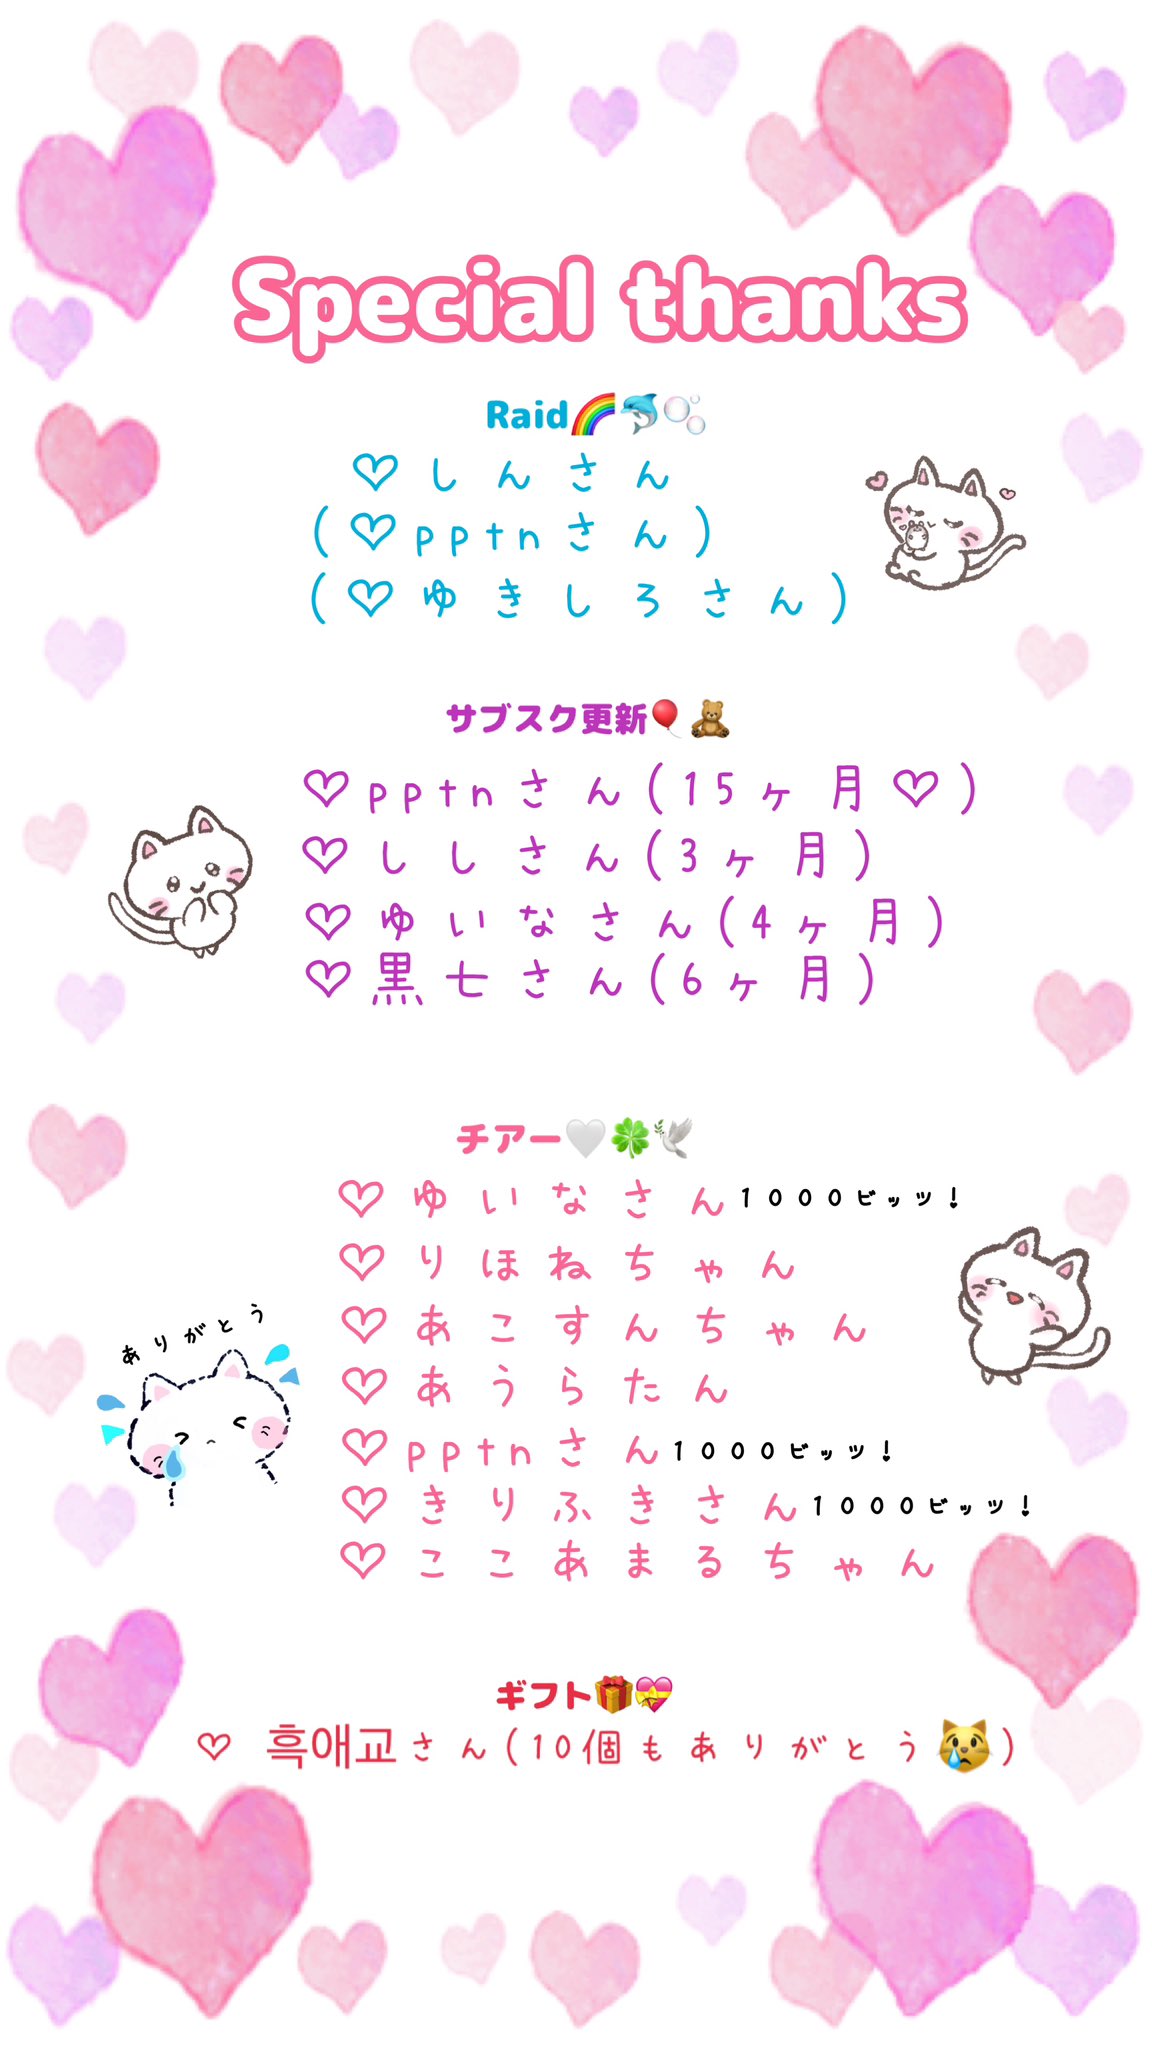 Special thanks
Raid🌈🐬🫧
♡しんさん
(♡pptnさん)
(♡ゆきしろさん)
サブスク更新🎈🧸
♡pptnさん(15ヶ月♡)
♡ししさん(3ヶ月)
♡ゆいなさん(4ヶ月)
♡黒七さん(6ヶ月)
チアー🤍🍀🕊️
♡ゆいなさん1000ビッツ!
♡りほねちゃん
♡あこすんちゃん
♡あうらたん
♡pptnさん1000ビッツ!
♡きりふきさん1000ビッツ!
♡ここあまるちゃん
ありがとう
ギフト🎁💝
♡ 흑애교さん(10個もありがとう😿)